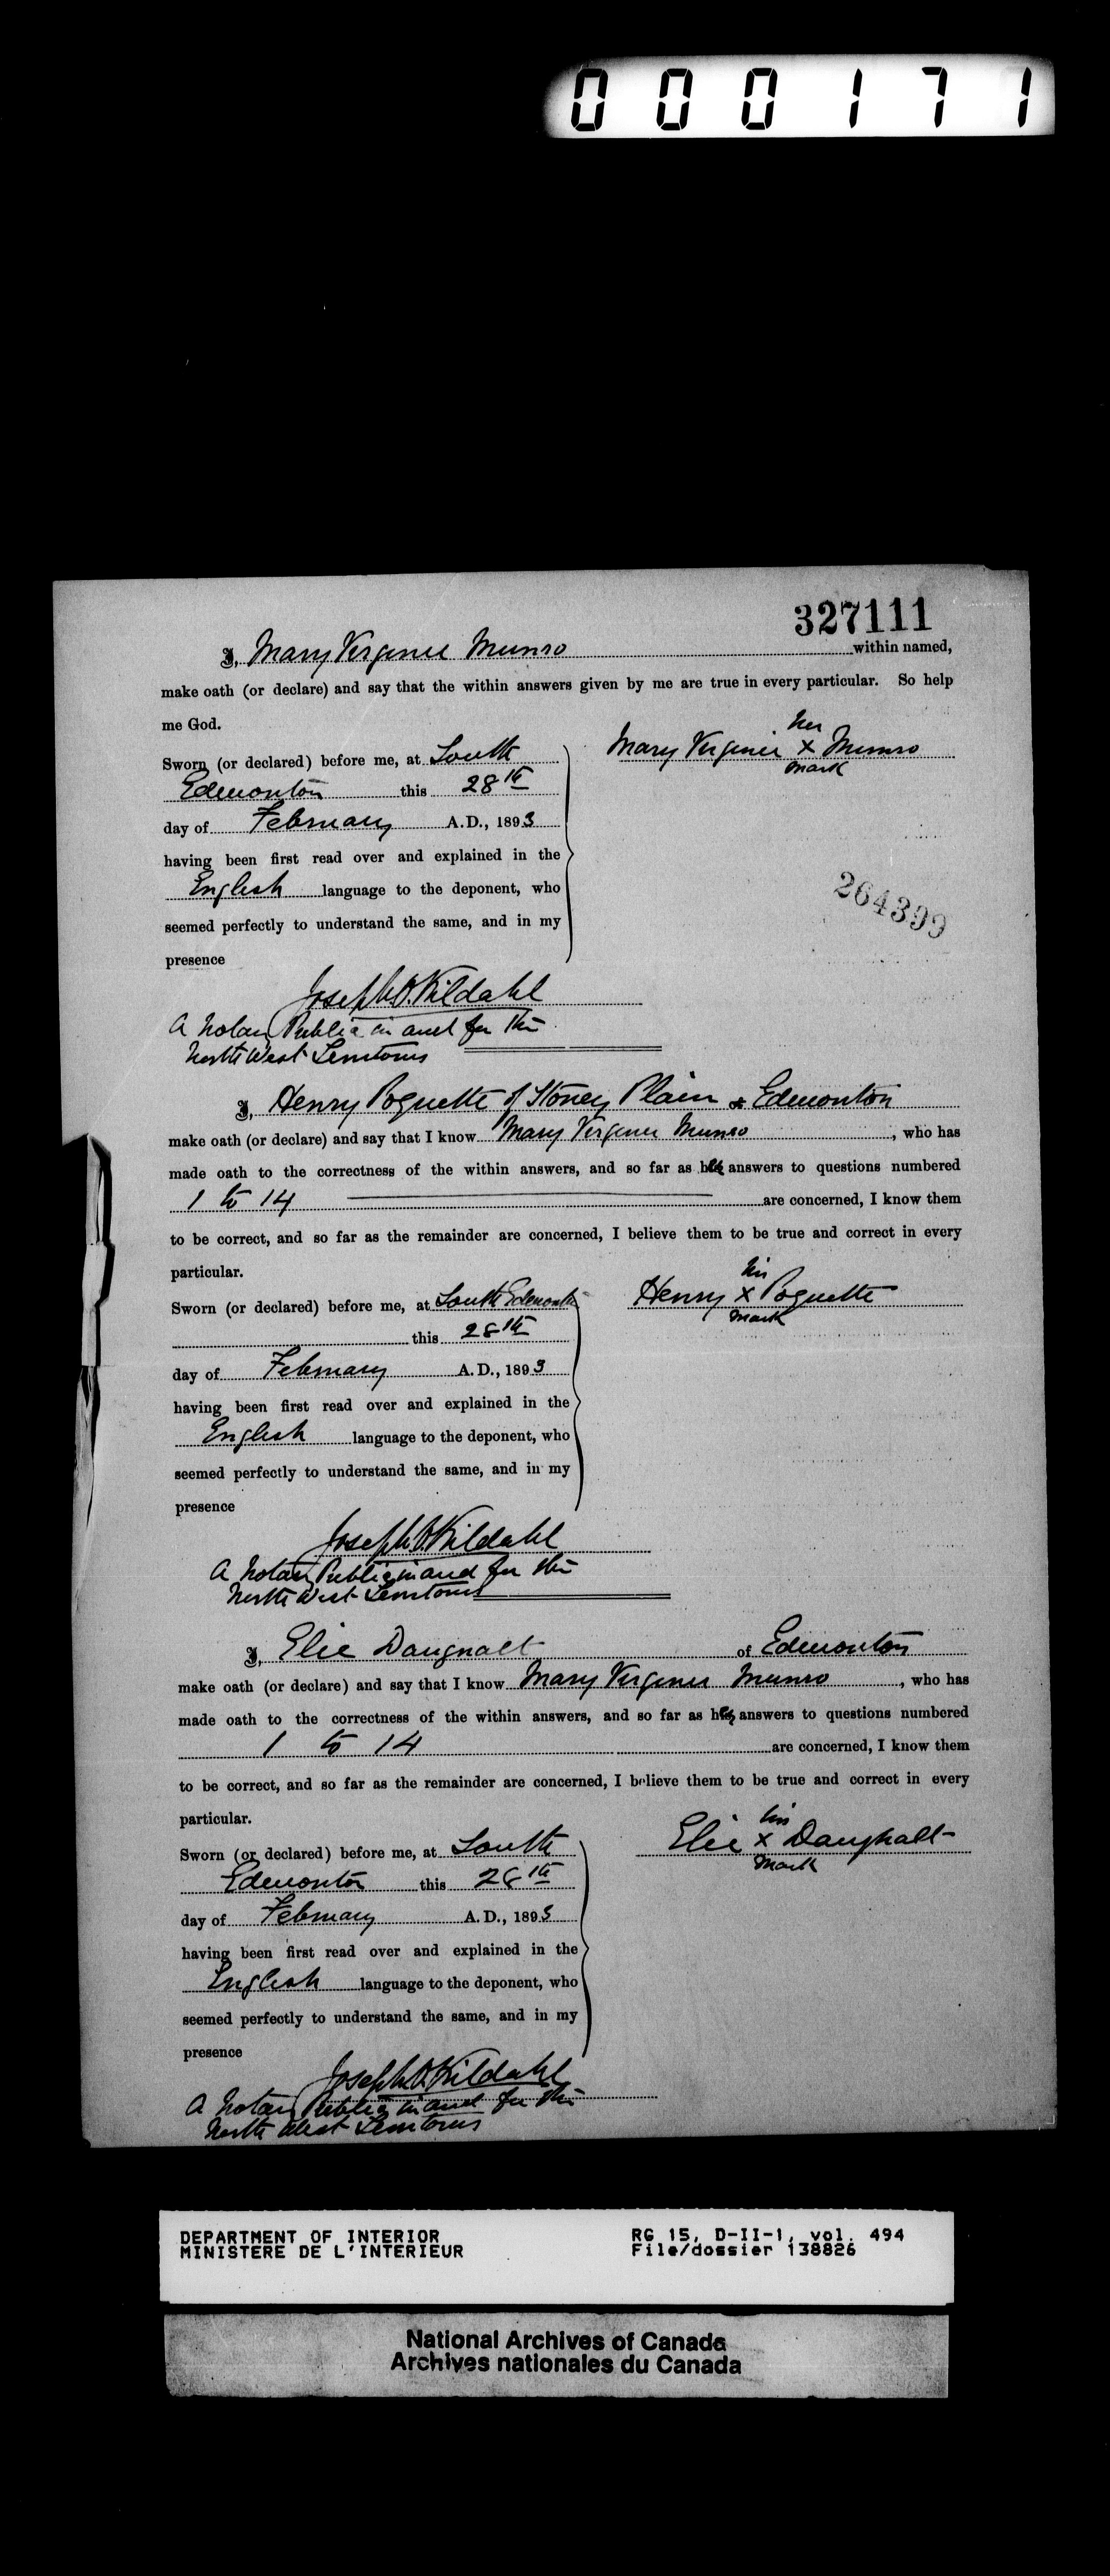 000171
327111
I, Mary Virginie Munro within named,
make oath (or declare) and say that the within answers given by me are true in every particular. So help
me God.
her
Mary Virginie X Munro
mark
Sworn (or declared) before me, at South
Edmonton this 28th
day of February A.D., 1893
having been first read over and explained in the
English language to the deponent, who
264399
seemed perfectly to understand the same, and in my
presence
Joseph O. Kildahl
A Notary Public in and for the
North West Territories
I, Henry Poquette of Stoney Plain Edmonton
make oath (or declare) and say that I know Mary Virginie Munro, who has
made oath to the correctness of the within answers, and so far as her answers to questions numbered
1 to 14 are concerned, I know them
to be correct, and so far as the remainder are concerned, I believe them to be true and correct in every
particular.
his
Henry X Poquette
mark
Sworn (or declared) before me, at South Edmonton
this 28th
day of February A.D., 1893
having been first read over and explained in the
English language to the deponent, who
seemed perfectly to understand the same, and in my
presence
Joseph O. Kildahl
A Notary Public in and for the
North West Territories
I, Elie Daugnalt of Edmonton
make oath (or declare) and say that I know Mary Virginie Munro, who has
made oath to the correctness of the within answers, and so far as her answers to questions numbered
1 to 14 are concerned, I know them
to be correct, and so far as the remainder are concerned, I believe them to be true and correct in every
particular.
his
Elie X Daughalt
mark
Sworn (or declared) before me, at South
Edmonton this 28th
day of February A.D., 1893
having been first read over and explained in the
English language to the deponent, who
seemed perfectly to understand the same, and in my
presence
Joseph O. Kildahl
A Notary Public in and for the
North West Territories
DEPARTMENT OF INTERIOR RG 15, D-II-1, vol. 494
MINISTERE DE L'INTERIEUR File/dossier 138826
National Archives of Canada
Archives nationales du Canada